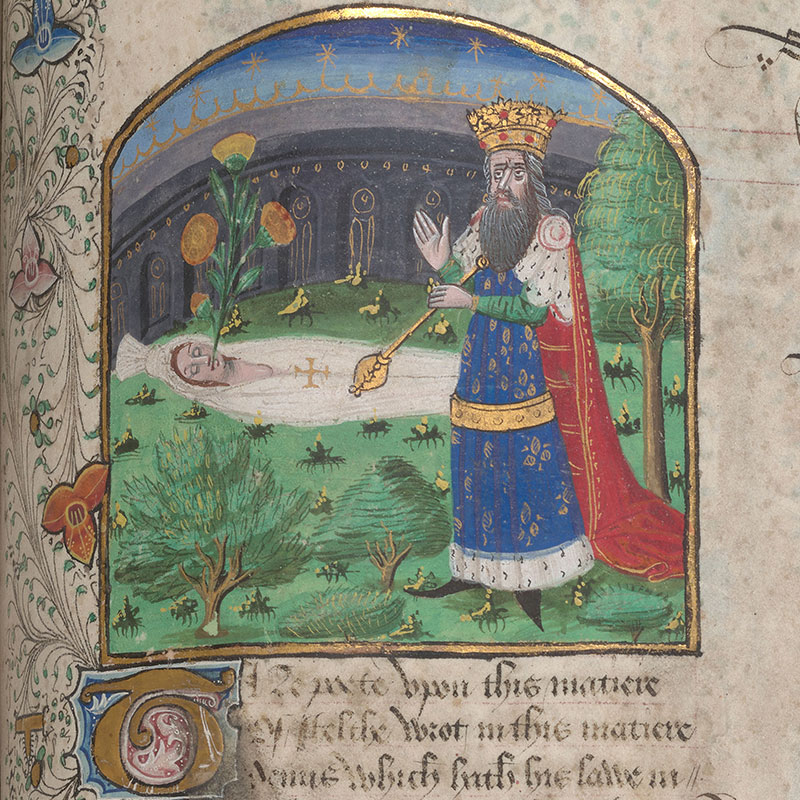 The poete vpon this matiere
Of stelthe wrot in this matiere
Venus which hath his lawe in